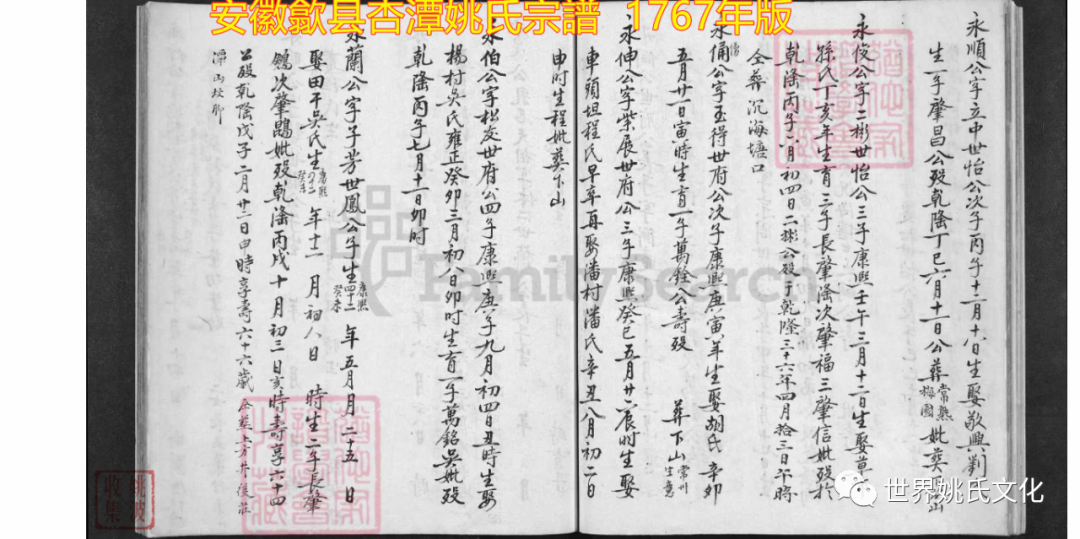 安徽歙县杏潭姚氏宗譜 1767年版
永順公字立中世怡公次子丙子十二月十八日生娶敬興劉
生一子肇昌公殁乾隆丁巳六月十一日公葬常熟梅園妣葵山
永俊公字二彬世怡公三子康熙壬午三月十二日生娶草
孫氏丁亥年生育三子長肇隆次肇福三肇信妣殁於
乾隆丙子八月初四日二彬公殁于乾隆三十六年四月拾三日午時
全葬沉海塘口
永俑公字玉得世府公次子康熙庚寅年生娶胡氏辛卯
五月廿一日寅時生育一子萬銓公壽殁 葬下山常州生意
永伸公字紫展世府公三子康熙癸巳五月廿八辰時生娶
車頭坦程氏早卒再娶潘村潘氏辛丑八月初二日
申时生程妣葬下山
永伯公字松友世府公四子康熙庚子九月初四日丑時生娶
楊村吳氏雍正癸卯三月初八日卯时生育一子萬銘吳妣殁
乾隆丙子七月十一日卯时
永蘭公字子芳世鳳公子生康熙四十二癸未年五月二五日
娶田干吳氏生康熙四十二癸未年十二月初八日時生二子長肇
鶴次肇鵾妣殁乾隆丙戌十月初三日亥時壽享六十四
公殁乾隆戊子二月廿二日申時享壽六十六歲
FamilySearch
世界姚氏文化
姚波
收集